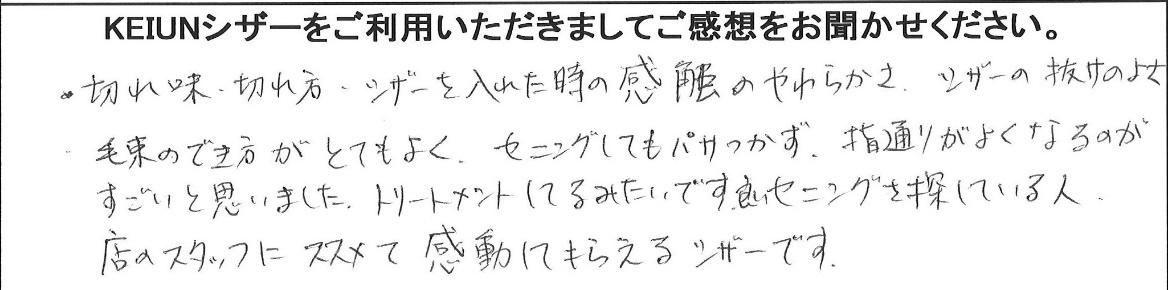 KEIUNシザーをご利用いただきましてご感想をお聞かせください。
・切れ味・切れ方・シザーを入れた時の感触のやわらかさ、シザーの抜けのよさ
毛束のでき方がとてもよく、セニングしてもパサつかず、指通りがよくなるのが
すごいと思いました。トリートメントしてるみたいです良いセニングを探している人、
店のスタッフにススメて感動してもらえるシザーです。